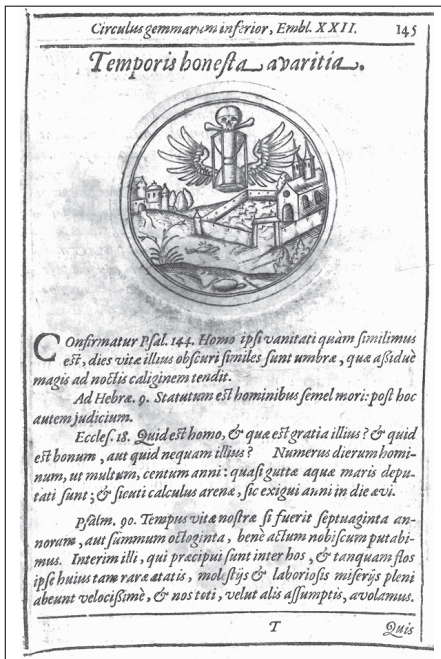 Circulus gemmarum inferior, Embl. XXII. 145
Temporis honesta avaritia.
COnfirmatur Psal. 144. Homo ipsi vanitati quàm simillimus
est, dies vitæ illius obscuri similes sunt umbræ, quæ aßiduè
magis ad noctis caliginem tendit.
Ad Hebræ. 9. Statutum est hominibus semel mori: post hoc
autem judicium.
Eccles. 18. Quid est homo, & quæ est gratia illius? & quid
est bonum, aut quid nequam illius? Numerus dierum homi-
num, ut multum, centum anni: quasi guttæ aquæ maris depu-
tati sunt; & sicuti calculus arenæ, sic exigui anni in die ævi.
Psalm. 90. Tempus vitæ nostræ si fuerit septuaginta an-
norum, aut summum octoginta, benè actum nobiscum putabi-
mus. Interim illi, qui præcipui sunt inter hos, & tanquam flos
ipse huius tam raræ ætatis, molestijs & laboriosis miserijs pleni
abeunt velocißimè, & nos toti, velut alis assumptis, avolamus.
T Quis